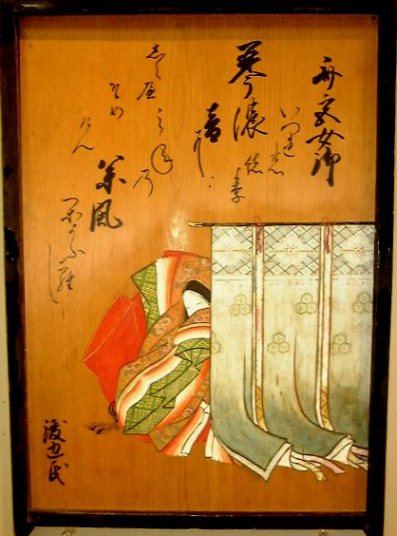 斎宮女御
いつれの
琴濃
音に
みね乃
松風
かよふ羅し
しらへ
そめ
けん
渡辺氏